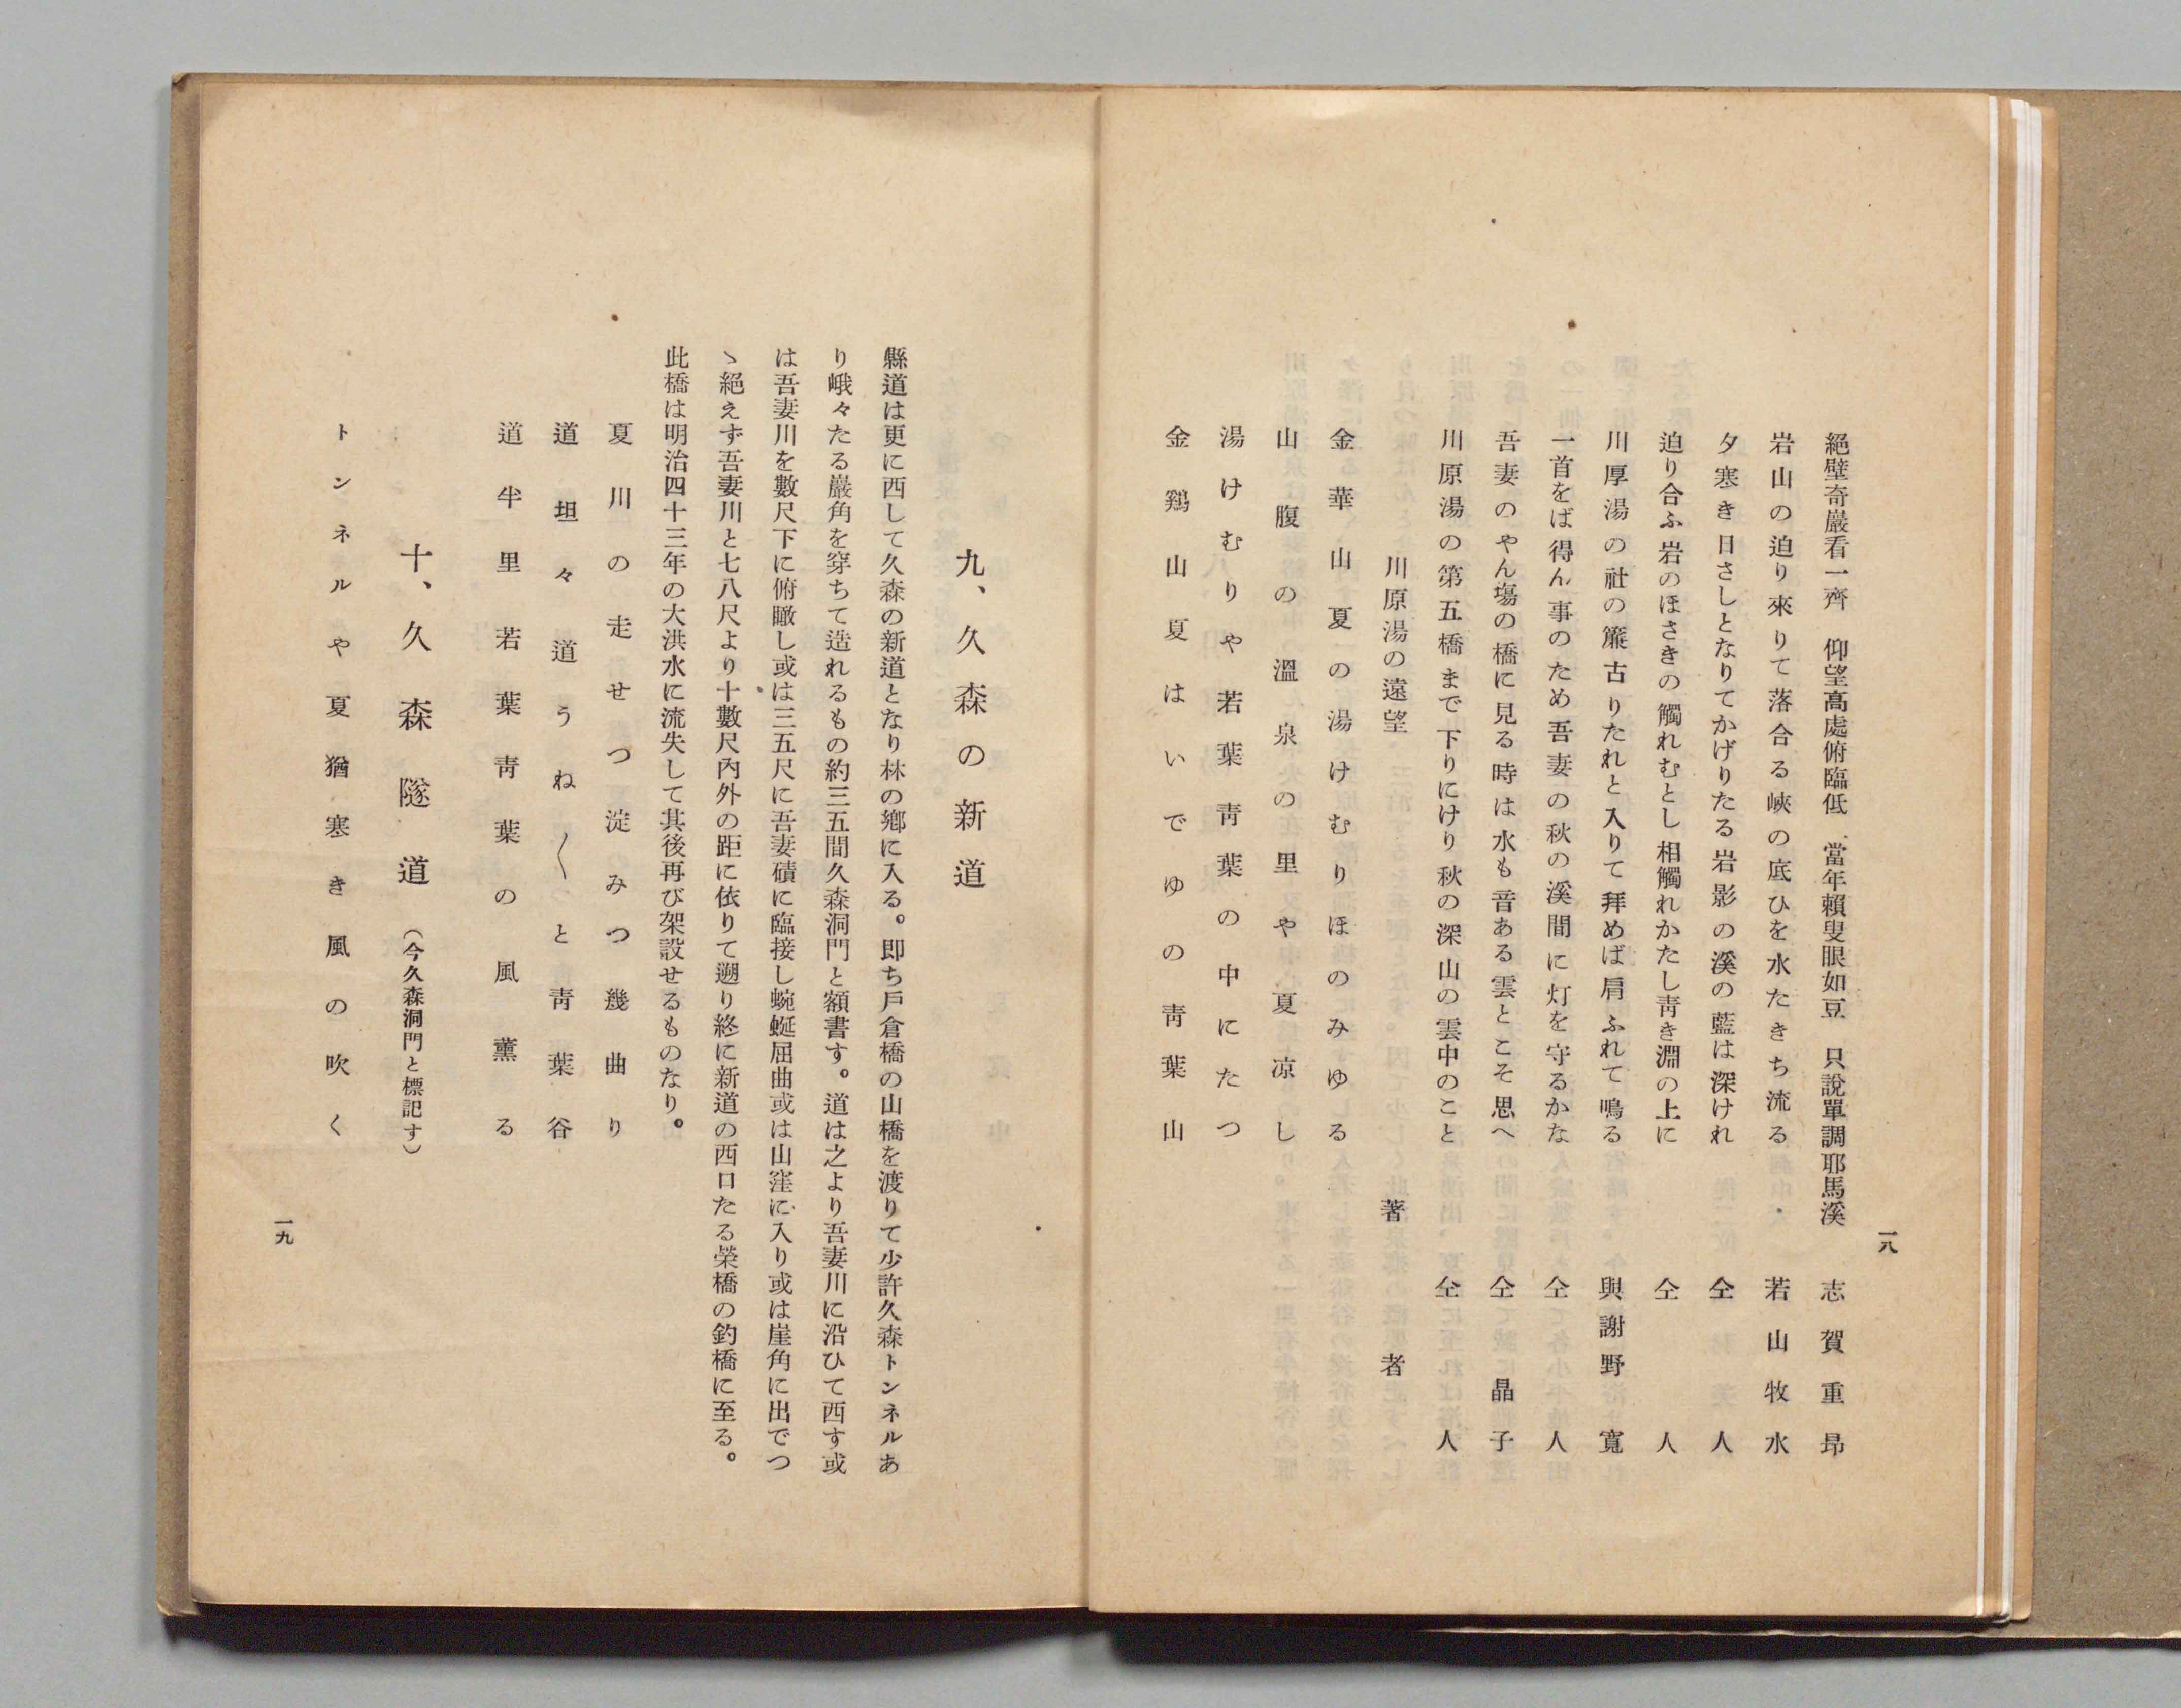 一八
絕壁奇巖看一齊　仰望高處俯臨低　當年賴叟眼如豆　只說單調耶馬溪　志賀重昻
岩山の迫り來りて落合る峽の底ひを水たきち流る　若山牧水
夕寒き日さしとなりてかげりたる岩影の溪の藍は深けれ　仝人
迫り合ふ岩のほさきの觸れむとし相觸れかたし靑き淵の上に　仝人
川厚湯の社の簾古りたれと入りて拜めば肩ふれて鳴る　與謝野寬
一首をば得ん事のため吾妻の秋の溪間に灯を守るかな　仝人
吾妻のやん塲の橋に見る時は水も音ある雲とこそ思へ　仝晶子
川原湯の第五橋まで下りにけり秋の深山の雲中のこと　仝人
川原湯の遠望　著者
金華山夏の湯けむりほのみゆる
山腹の溫泉の里や夏凉し
湯けむりや若葉靑葉の中にたつ
金鷄山夏はいでゆの靑葉山
九、久森の新道
縣道は更に西して久森の新道となり林の鄕に入る。卽ち戶倉橋の山橋を渡りて少許久森トンネルあ
り峨々たる巖角を穿ちて造れるもの約三五間久森洞門と額書す。道は之より吾妻川に沿ひて西す或
は吾妻川を數尺下に俯瞰し或は三五尺に吾妻磧に臨接し蜿蜒屈曲或は山窪に入り或は崖角に出でつ
ゝ絕えず吾妻川と七八尺より十數尺內外の距に依りて遡り終に新道の西口たる榮橋の釣橋に至る。
此橋は明治四十三年の大洪水に流失して其後再び架設せるものなり。
夏川の走せつ淀みつ幾曲り
道坦々道うね〱と靑葉谷
道半里若葉靑葉の風薰る
十、久森隧道（今久森洞門と標記す）
トンネルや夏猶寒き風の吹く
一九